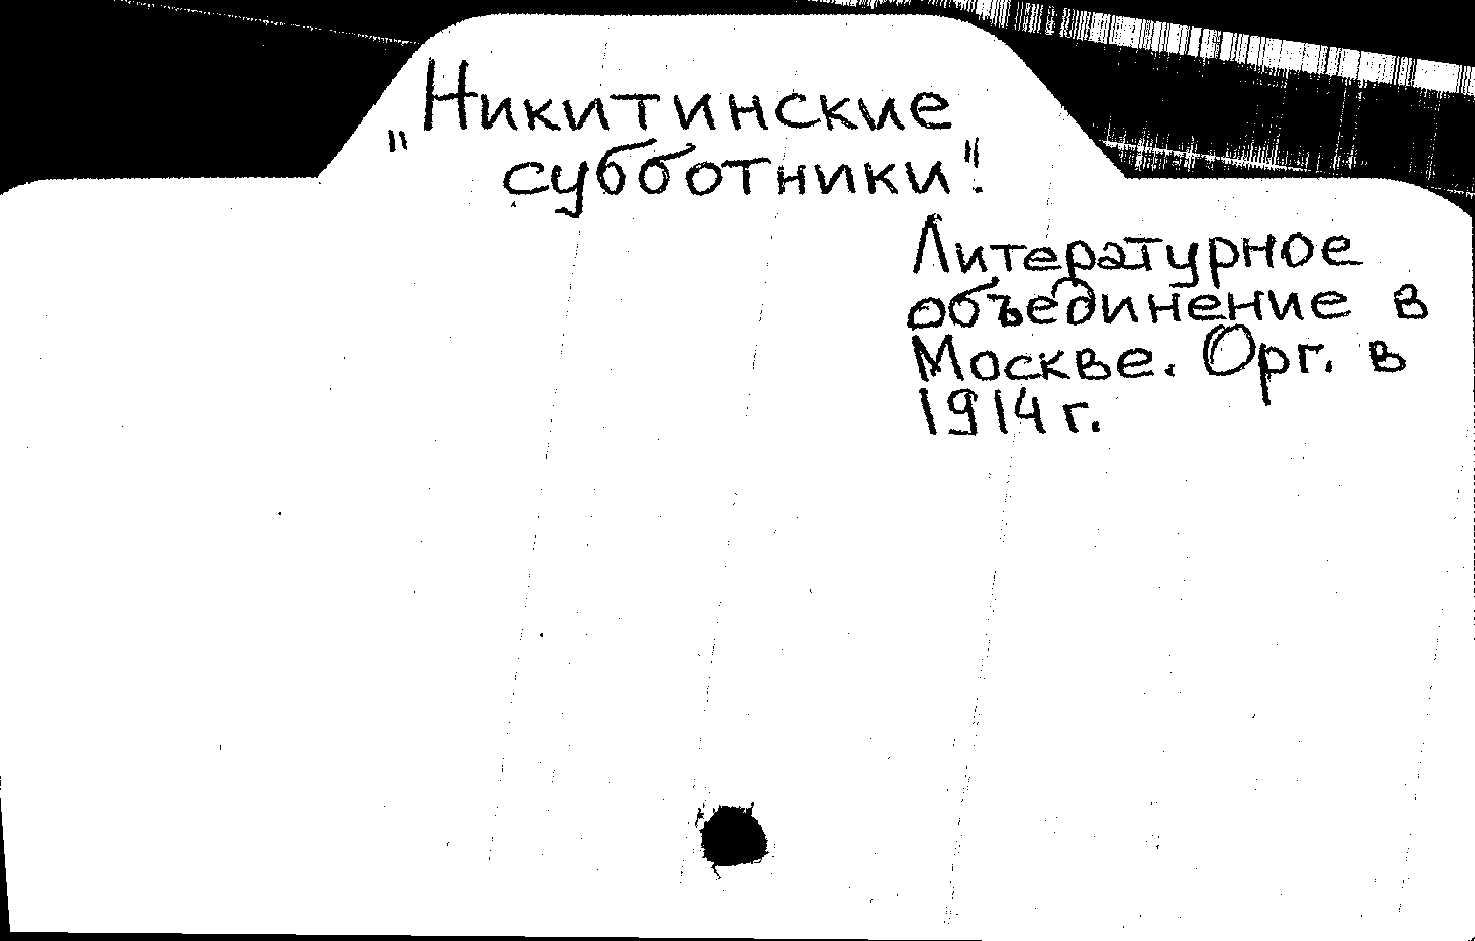 "Никитинские
субботники".
Литературное
объединение в
Москве. Орг. в
1914 г.